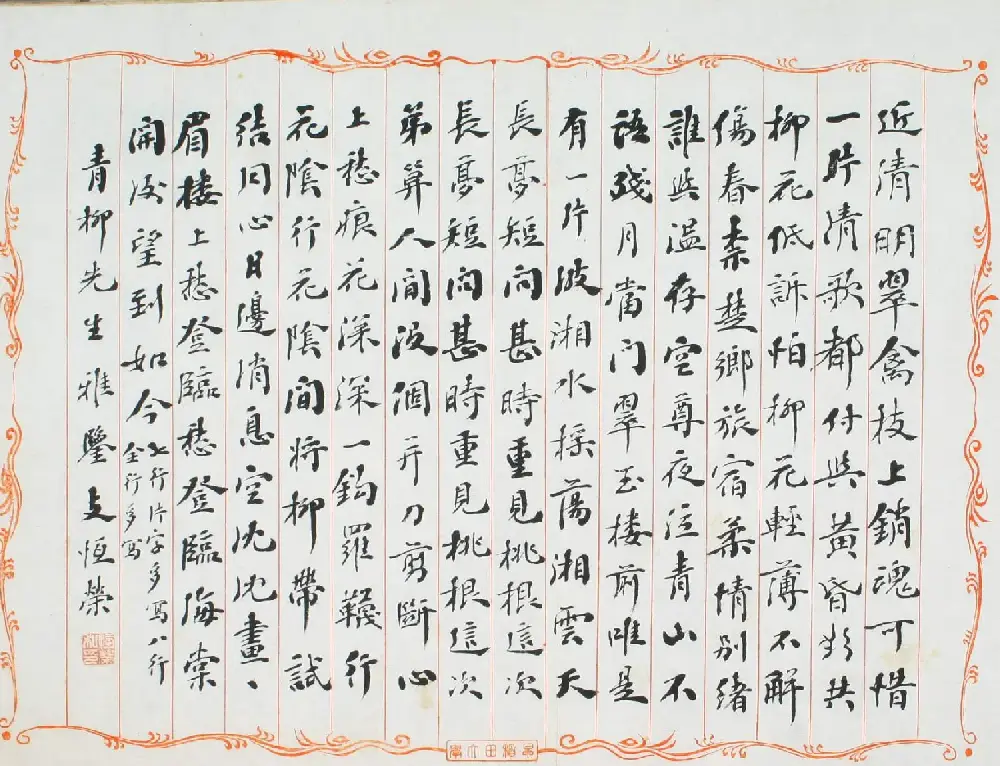 近清明翠禽枝上銷魂可惜
一片清歌都付與黃昏欲共
柳花低訴怕柳花輕薄不解
傷春楚鄉旅宿柔情別緒
誰與溫存空尊夜泣青山不
語殘月當門翠玉樓前唯是
有一片波湘水搖蕩湘雲天
長夢短問甚時重見桃根這次
長夢短問甚時重見桃根這次
第算人間沒個并刀剪斷心
上愁痕花深深一鈎羅襪行
花陰行花陰間將柳帶試
結同心日邊消息空沈沈畫、
眉樓上愁登臨愁登臨海棠
開後望到如今
七行片字多寫八行
全行多寫
青柳先生雅鑒支恒榮